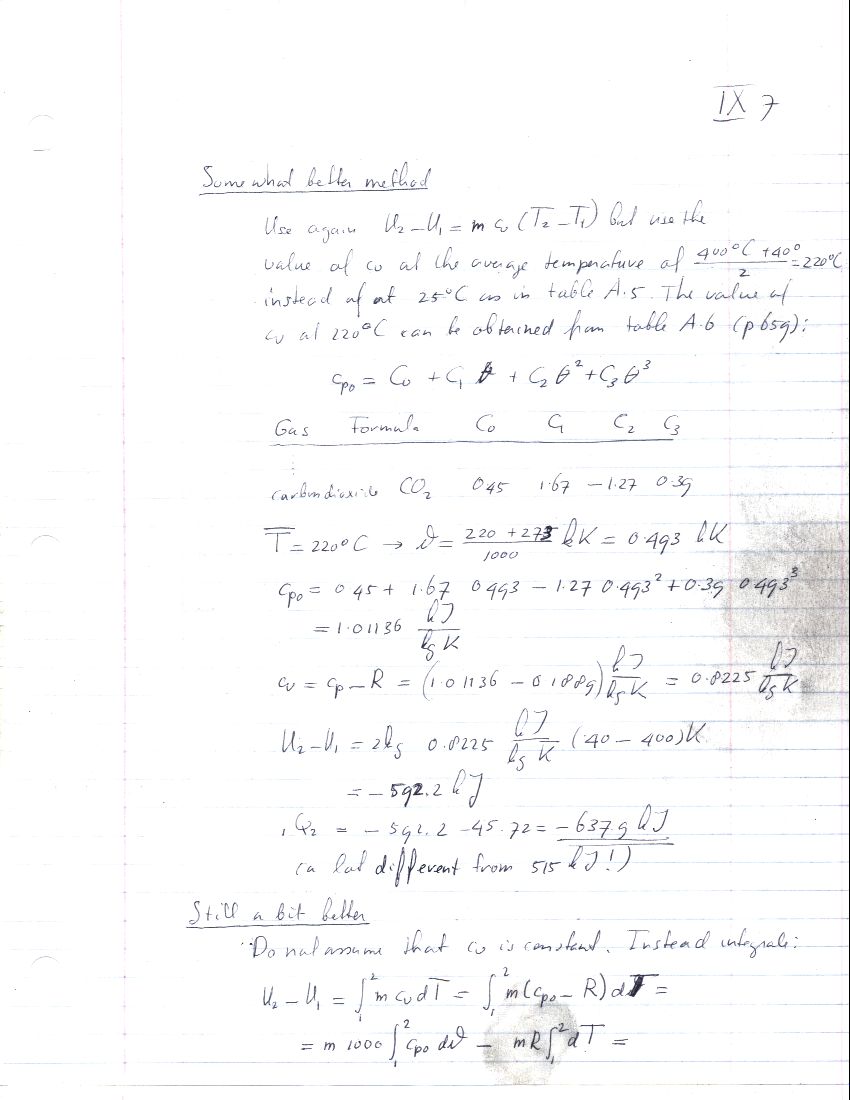 IX 7
Somewhat better method
Use again U₂ - U₁ = m cv (T₂ - T₁) but use the
value of cv at the average temperature of (400°C + 40°)/2 = 220°C
instead of at 25°C as in table A.5. The value of
cv at 220°C can be obtained from table A.6 (p 659):
cpo = C₀ + C₁ θ + C₂ θ² + C₃ θ³
Gas Formula C₀ C₁ C₂ C₃
carbondioxide CO₂ 0.45 1.67 -1.27 0.39
T̅ = 220°C → ϑ = (220 + 273)/1000 kK = 0.493 kK
cpo = 0.45 + 1.67 0.493 - 1.27 0.493² + 0.39 0.493³
= 1.01136 kJ/kg K
cv = cp - R = (1.01136 - 0.1889) kJ/kg K = 0.8225 kJ/kg K
U₂ - U₁ = 2kg 0.8225 kJ/kg K (40 - 400)K
= -592.2 kJ
₁Q₂ = -592.2 - 45.72 = -637.9 kJ
(a lot different from 515 kJ!)
Still a bit better
Do not assume that cv is constant. Instead integrate:
U₂ - U₁ = ∫₁² m cv dT = ∫₁² m(cpo - R) dT =
= m 1000 ∫₁² cpo dϑ - mR ∫₁² dT =